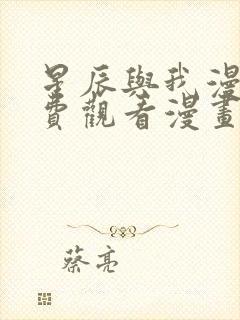 星辰與我漫
費觀看漫畫
蔡亮